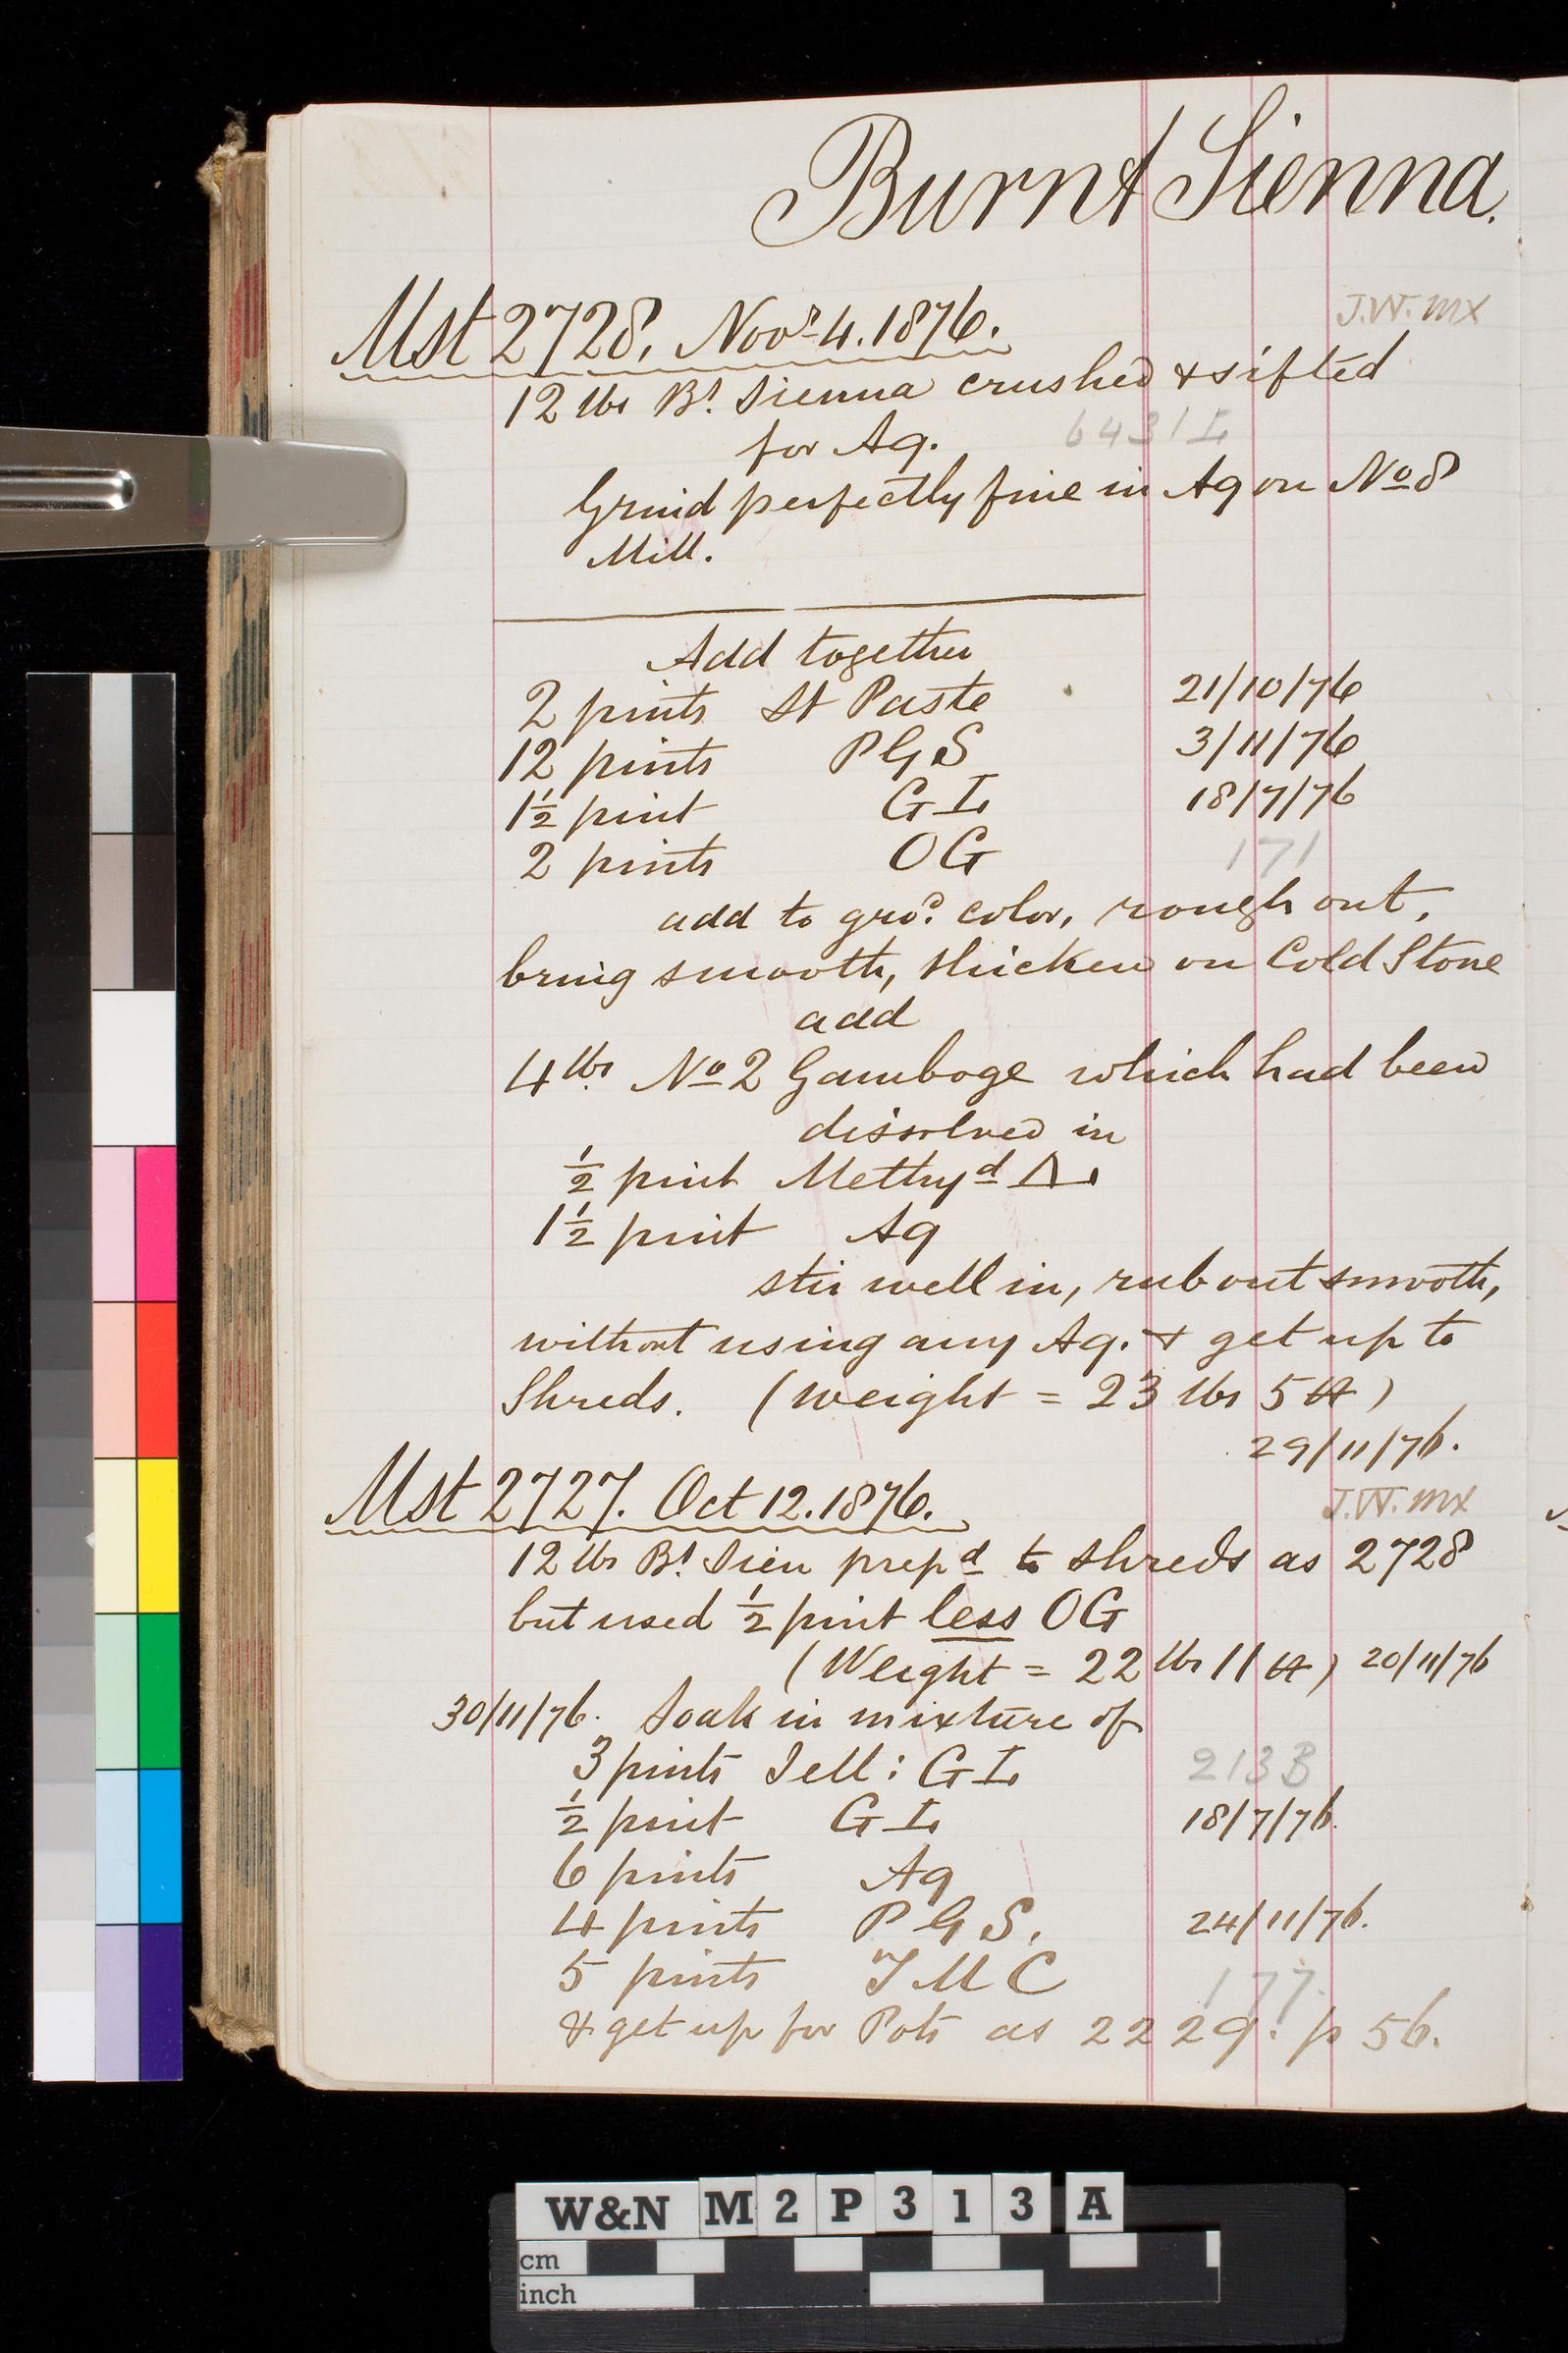 Burnt Sienna.
J.W. Mx
Mst 2728. Novr 4. 1876.
12 lbs Bt. Sienna crushed & sifted
for Aq. 6431 L
Grind perfectly fine in Aq on No 8
Mill.
Add together
2 pints St Paste 21/10/76
12 pints P G S 3/11/76
1½ pint G L 18/7/76
2 pints OG 171
add to grod. color, rough out,
bring smooth, thicken on Cold Stone
add
4 lbs. No 2 Gamboge which had been
dissolved in
½ pint Methyd
1½ pint Aq
stir well in, rub out smooth,
without using any Aq. & get up to
Shreds. (Weight = 23 lbs 5 )
29/11/76.
Mst 2727. Oct 12. 1876. J.W. Mx
12 lbs Bt. Sien prepd to shreds as 2728
but used ½ pint less OG
(Weight = 22 lbs 11 ) 20/11/76
30/11/76. Soak in mixture of
3 pints Jell: G L 213 B
½ pint G L 18/7/76.
6 pints Aq
4 pints P G S. 24/11/76.
5 pints T M C 177.
& get up for Pots as 2229. p 56.
W&N M 2 P 3 1 3 A
cm
inch